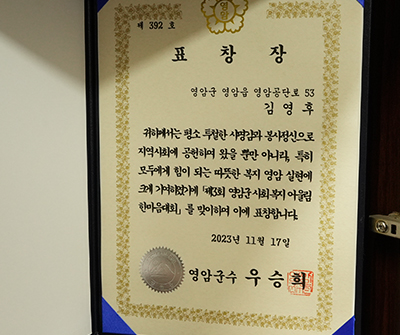 제 392 호
표 창 장
영암군 영암읍 영암공단로 53
김 영 후
귀하께서는 평소 투철한 사명감과 봉사정신으로
지역사회에 공헌하여 왔을 뿐만 아니라, 특히
모두에게 힘이 되는 따뜻한 복지 영암 실현에
크게 기여하셨기에 「제3회 영암군 사회복지 어울림
한마음대회」를 맞이하여 이에 표창합니다.
2023년 11월 17일
영암군수 우승희